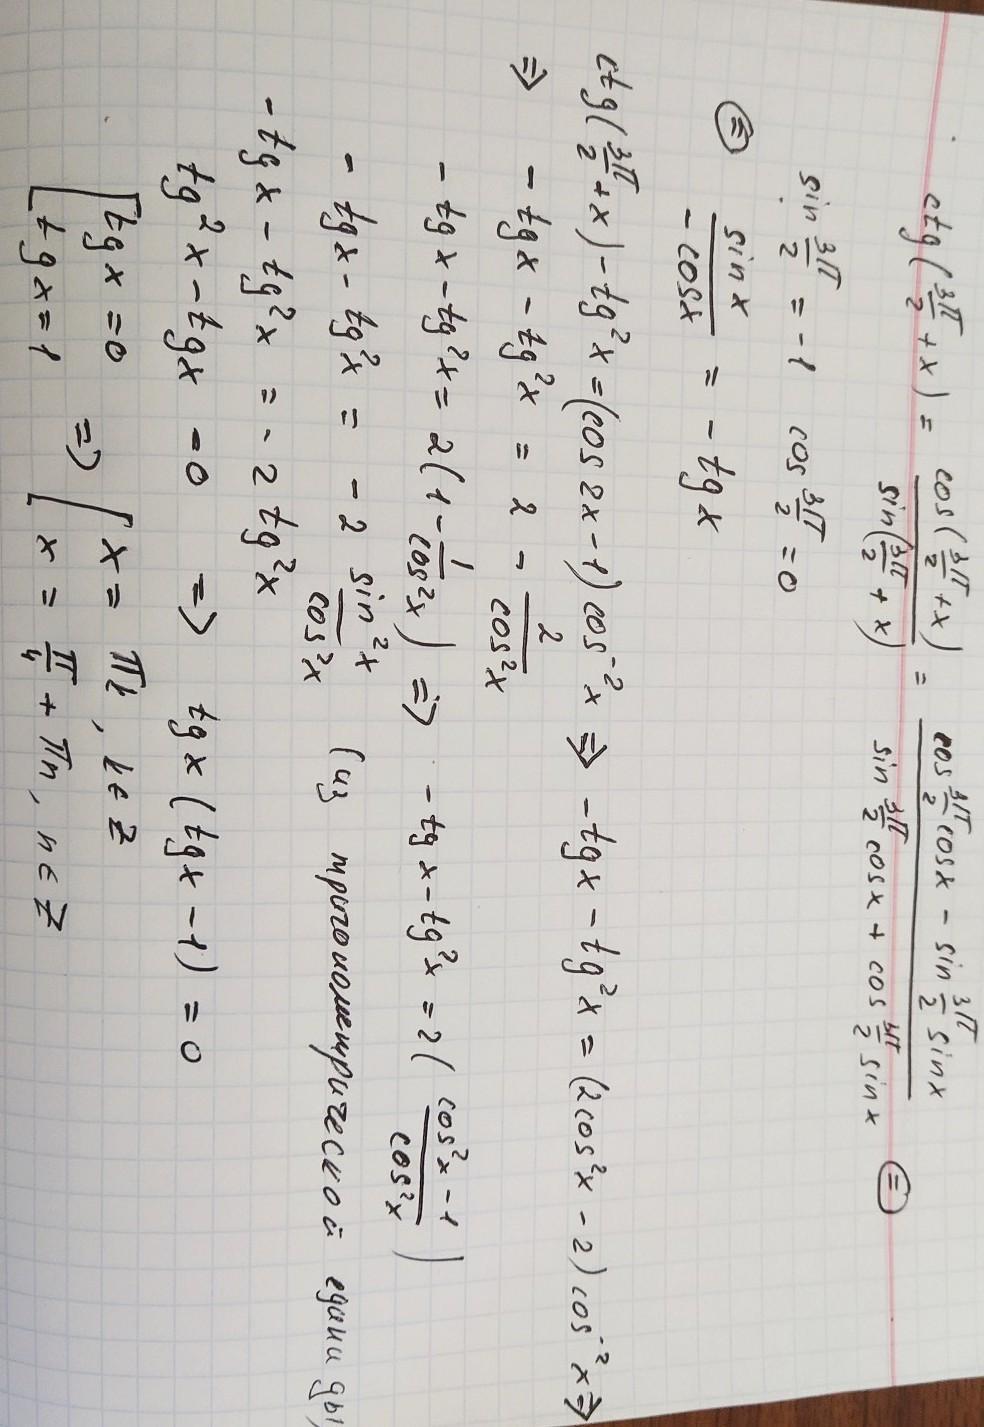 ctg(3π/2 + x) = cos(3π/2 + x)/sin(3π/2 + x) = (cos 3π/2 cosx - sin 3π/2 sinx)/(sin 3π/2 cosx + cos 3π/2 sinx) ⊜
sin 3π/2 = -1 cos 3π/2 = 0
⊜ sinx/-cosx = - tgx
ctg(3π/2 + x) - tg²x = (cos2x - 1) cos⁻²x => - tgx - tg²x = (2cos²x - 2) cos⁻²x =>
=> - tgx - tg²x = 2 - 2/cos²x
- tgx - tg²x = 2(1 - 1/cos²x) => - tgx - tg²x = 2((cos²x - 1)/cos²x)
- tgx - tg²x = - 2 sin²x/cos²x (из тригонометрической единицы)
- tgx - tg²x = - 2 tg²x
tg²x - tgx = 0 => tgx (tgx - 1) = 0
[ tgx = 0 => [ x = πk, k ∈ Z
[ tgx = 1 [ x = π/4 + πn, n ∈ Z